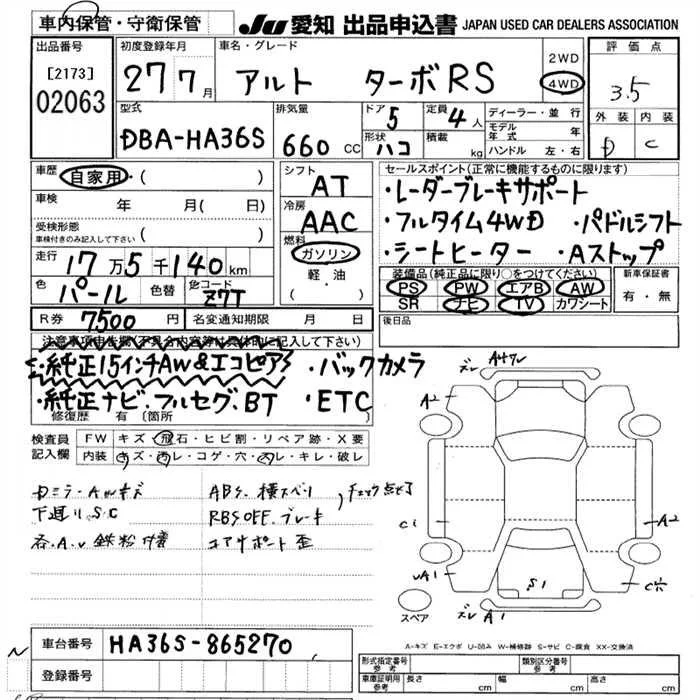 車内保管・守衛保管
JU 愛知 出品申込書 JAPAN USED CAR DEALERS ASSOCIATION
出品番号
[2173]
02063
初度登録年月
27 7月
車名・グレード
アルト ターボRS
2WD
4WD
評価点
3.5
外装 内装
D C
型式
DBA-HA36S
排気量
660 CC
ドア
5
形状
ハコ
定員
4人
積載
kg
ディーラー・並行
モデル年式 年
ハンドル 左・右
車歴
自家用・( )
車検 年 月( 日)
受検形態
車検付きのみ記入して下さい ( )
走行 17万5千140km
色 パール 色替 色コード Z7T
R券 7500円 名変通知期限 月 日
シフト
AT
冷房
AAC
燃料
ガソリン
軽・油
( )
セールスポイント(正常に機能するものに限ります)
・レーダーブレーキサポート
・フルタイム4WD ・パドルシフト
・シートヒーター ・Aストップ
装備品(純正品に限り○をつけてください)
PS PW エアB AW
SR ナビ TV カワシート
新車保証書
有・無
後日品
注意事項申告欄(不具合内容等は具体的に記入して下さい)
・純正15インチAW&エコピアS ・バックカメラ
・純正ナビ.フルセグ.BT ・ETC
修復歴 有 (箇所
検査員記入欄
FW キズ・飛石・ヒビ割・リペア跡・X要
内装 キズ・汚レ・コゲ・穴・汚レ・キレ・破レ
Dミラー・Aツメキズ
下廻リ S.C
各.A.U 鉄粉付着
ABS. 横スベリ
RBSOFF. ブレーキ
チェック点灯
ズレ Aサプレ
A2
C1
A2
UA1
S1
C穴
ズレ A1
スペア
A-キズ E-エクボ U-凹み W-補修跡 S-サビ C-腐食 XX-交換済
N
車台番号 HA36S-865270
登録番号
形式指定番号
参考
類別区分番号
参考
車庫証明用
参考
長さ cm 幅 cm 高さ cm